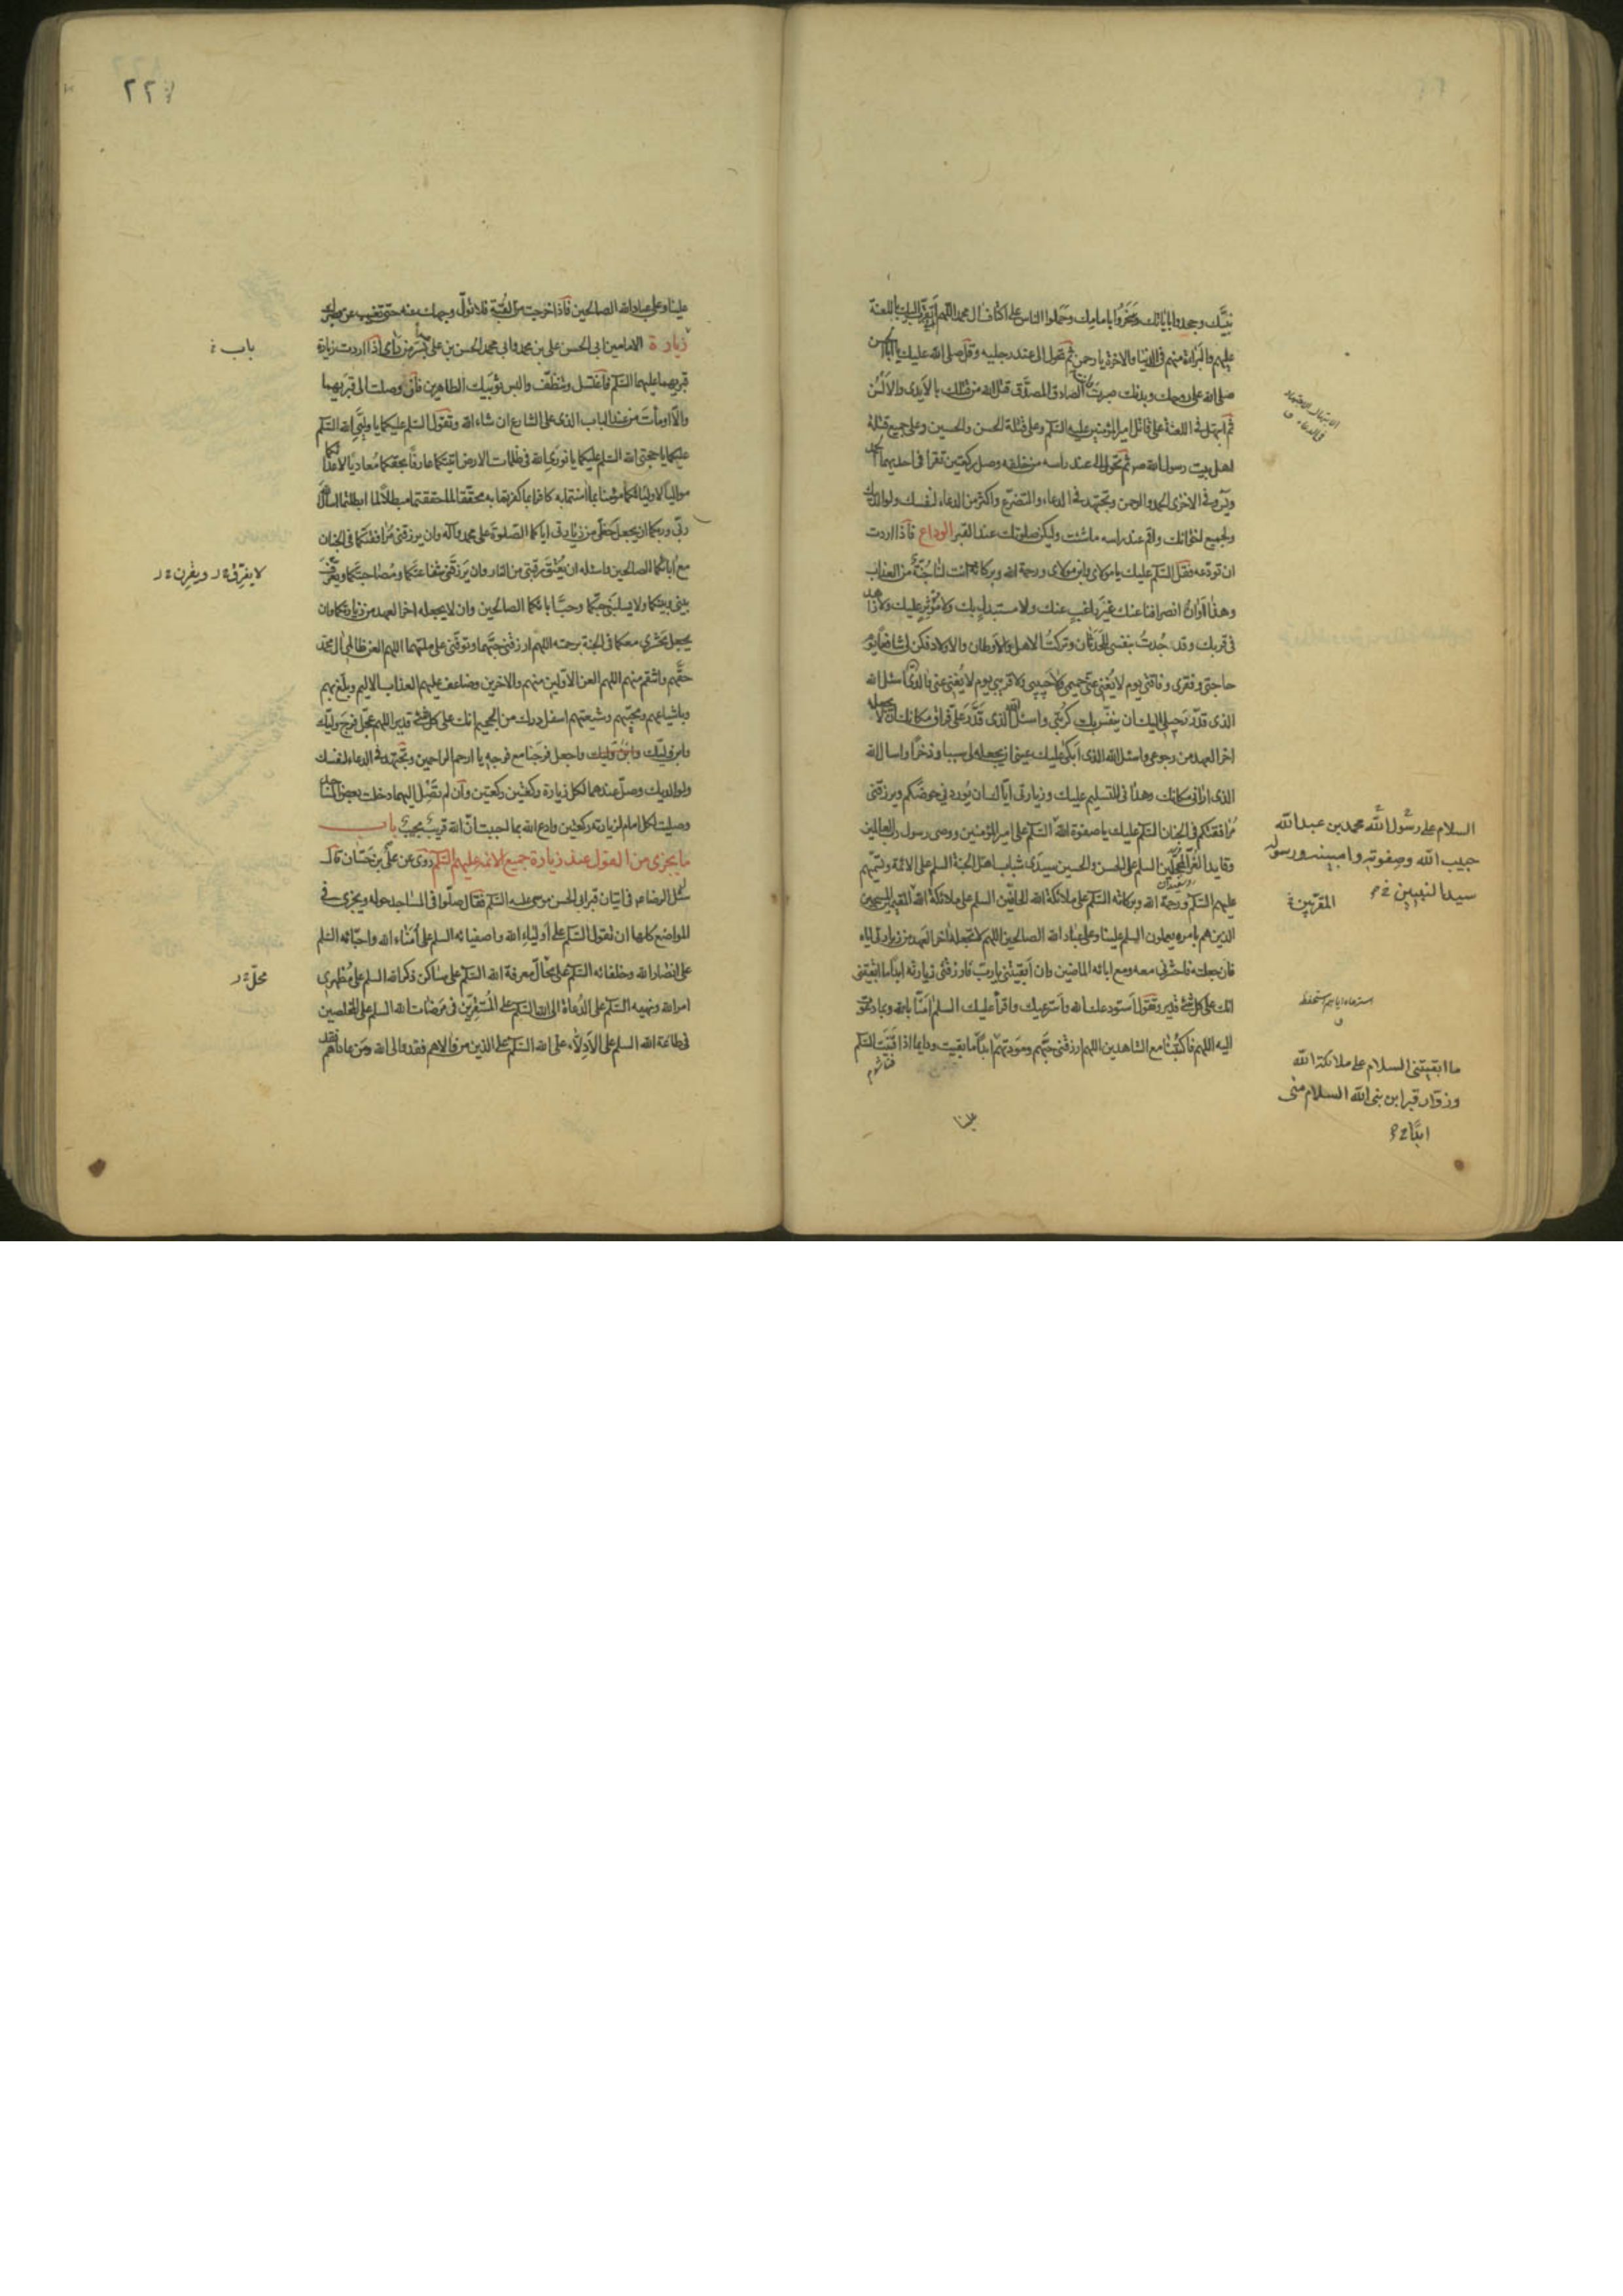 نبيّك وجحدوا باياتك وسخروا بامامك وحملوا الناس على اكتاف ال محمد اللهم انى اتقرب اليك باللعنة
عليهم والبراءة منهم فى الدنيا والاخرة يا رحمن ثم تحول الى عند رجليه وقل صلى الله عليك يا ابا الحسن
صلى الله على روحك وبدنك صبرت وانت الصادق المصدّق قتل الله من قتلك بالايدى والالسن
ثم ابتهل فى اللعنة على قاتل امير المؤمنين عليه السلم وعلى قتلة الحسن والحسين وعلى جميع قتلة
اهل بيت رسول الله ص ثم تحول الى عند راسه من خلفه وصل ركعتين تقرا فى احديهما الحمد
ويٓس وفى الاخرى الحمد والرحمن وتجتهد فى الدعاء والتضرع واكثر من الدعاء لنفسك ولوالديك
ولجميع اخوانك واقم عند راسه ماشئت وليكن صلوتك عند القبر الوداع فاذا اردت
ان تودّعه فقل السلام عليك يا مولاى وابن مولاى ورحمة الله وبركاته انت لنا جُنّة من العذاب
وهذا اوان انصرافنا عنك غير راغب عنك ولا مستبدل بك ولا مؤثر عليك ولا زاهد
فى قربك وقد جُدتُ بنفسى للحدثان وتركتُ الاهل والاوطان والاولاد فكن لى شافعا يوم
حاجتى وفقرى وفاقتى يوم لا يُغنى عنى حميمى ولا حبيبى ولا قريبى يوم لا يُغنى عنى والدى اسئل الله
الذى قدّر رحيلى اليك ان ينفّس بك كربتى واسئل الله الذى قدّر علىّ فراق مكانك ان لا يجعله
اخر العهد من رجوعى واسئل الله الذى ابكى عليك عينى ان يجعله لى سببا وذخرا واسال الله
الذى ارانى مكانك وهدانى للتسليم عليك وزيارتى اياك ان يوردنى حوضكم ويرزقنى
مرافقتكم فى الجنان السلام عليك يا صفوة الله السلام على امير المؤمنين ووصى رسول رب العالمين
وقايد الغُرّ المحجّلين السلم على الحسن والحسين سيدى شباب اهل الجنة السلم على الائمة وتسمّيهم
عليهم السلم ورحمة الله وبركاته السلام على ملائكة الله الحافّين السلم على ملائكة الله المقيمين المسبحين
الذين هم بامره يعملون السلم علينا وعلى عباد الله الصالحين اللهم لا تجعله اخر العهد من زيارتى اياه
فان جعلته فاحشرنى معه ومع ابائه الماضين وان ابقيتنى يا ربّ فارزقنى زيارته ابدا ما ابقيتنى
انك على كل شئ قدير وتقول استودعك الله واسترعيك واقرأ عليك السلم امنّا بالله وبما دعوت
اليه اللهم فاكتبنا مع الشاهدين اللهم ارزقنى حبّهم ومودتهم ابدا ما بقيت ودايما اذا فنيت السلام
علينا
الابتهال الاجتهاد
فى الدعاء ق
السلام على رسول الله محمد بن عبدالله
حبيب الله وصفوته وامينه ورسوله
سيد النبيين
المقربين
استرعاه اياهم استحفظه
ق
ما ابقيتنى السلام على ملائكة الله
وزوّار قبر ابن نبى الله السلام منى
ابدًا
٢٢٧
علينا وعلى عباد الله الصالحين فاذا خرجت من القبّة فلا تولّ وجهك عنه حتى تغيب عن بصرك
زيارة الامامين ابى الحسن على بن محمد وابى محمد الحسن بن على بسرّ من راى اذا اردت زيارة
قبريهما عليهما السلم فاغتسل وتنظّف والبس ثوبيك الطاهرين فان وصلت الى قبريهما
والّا اومأت من عند الباب الذى على الشارع ان شاء الله وتقول السلم عليكما يا وليّى الله السلم
عليكما يا حجتى الله السلم عليكما يا نورى الله فى ظلمات الارض اتيتكما عارفا بحقكما معاديا لاعدائكما
مواليا لاوليائكما مؤمنا بما امنتما به كافرا بما كفرتما به محقّقا لما حققتما مبطلا لما ابطلتما اسال الله
ربّى وربكما ان يجعل حظّى من زيارتى اياكما الصلوة على محمد وآله وان يرزقنى مرافقتكما فى الجنان
مع ابائكما الصالحين واسئله ان يعتق رقبتى من النار وان يرزقنى شفاعتكما ومصاحبتكما ويعرّف
بينى وبينكما ولا يسلبنى حبّكما وحبّ ابائكما الصالحين وان لا يجعله اخر العهد من زيارتكما وان
يجعل محشرى معكما فى الجنة برحمته اللهم ارزقنى حبّهما وتوفّنى على ملتهما اللهم العن ظالمى ال محمد
حقّهم وانتقم منهم اللهم العن الاولين منهم والاخرين وضاعف عليهم العذاب الاليم وبلّغ بهم
وباشياعهم ومحبّيهم وشيعتهم اسفل درك من الجحيم انك على كل شئ قدير اللهم عجّل فرج وليّك
وابن وليّك واجعل فرجنا مع فرجه يا ارحم الراحمين وتجتهد فى الدعاء لنفسك
ولوالديك وصلّ عندهما لكل زيارة ركعتين ركعتين وان لم تصل اليهما دخلت بعض المساجد
وصليت لكل امام لزيارته ركعتين وادع الله بما احببت انّ الله قريب مجيب باب
ما يجزى من القول عند زيارة جميع الائمة عليهم السلم روى عن على بن حسّان قال
سئل الرضا ع فى اتيان قبر ابى الحسن موسى عليه السلم فقال صلّوا فى المساجد حوله ويجزى فى
المواضع كلها ان تقول السلم على اولياء الله واصفيائه السلم على امناء الله واحبّائه السلم
على انصار الله وخلفائه السلام على محالّ معرفة الله السلم على مساكن ذكر الله السلم على مُظهرى
امر الله ونهيه السلم على الدعاة الى الله السلم على المستقرّين فى مرضات الله السلم على المخلصين
فى طاعة الله السلم على الادلّاء على الله السلم على الذين من والاهم فقد والى الله ومن عاداهم فقد
باب
لا يفرّق ويقرن
محلّ